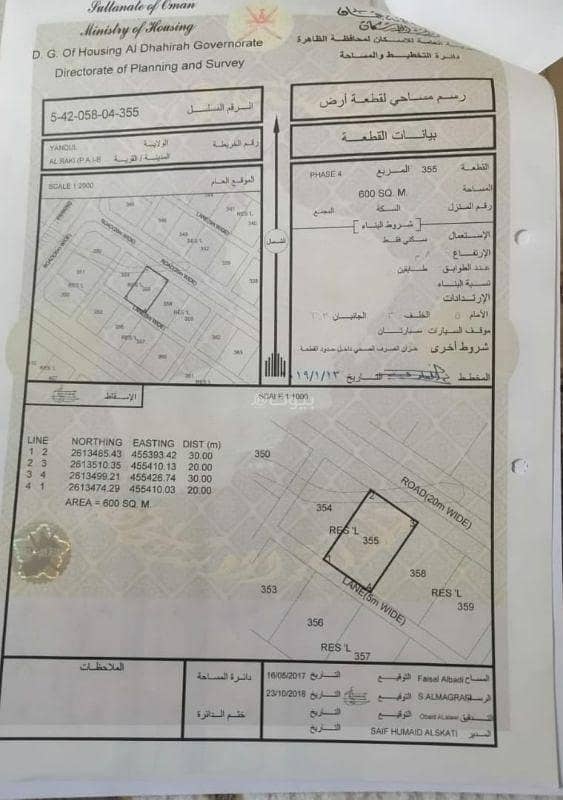 Sultanate of Oman
Ministry of Housing
D. G. Of Housing Al Dhahirah Governorate
Directorate of Planning and Survey
العامة للاسكان لمحافظة الظاهرة
دائرة التخطيط والمساحة
5-42-058-04-355
رسم مساحي لقطعة أرض
YANQUL الولاية رقم الخريطة
AL RAKI (P.A.)-B المدينة / القرية
بيانات القطعة
SCALE 1:2000 الموقع العام
القطعة 355 المربع PHASE 4
المساحة 600 SQ. M.
رقم المنزل السكة المجمع
شروط البناء
الإستعمال سكني فقط
الإرتفاع
عدد الطوابق طابقين
نسبة البناء
الإرتدادات
الأمام 5 الخلف 3 الجانبان
موقف السيارات سيارتان
شروط أخرى خزان الصرف الصحي داخل حدود القطعة
المخطط التاريخ
الشمال
ROAD(20m WIDE)
LANE(5m WIDE)
RES 'L
الإسقاط
SCALE 1:1000
بيوت
LINE NORTHING EASTING DIST (m)
1 2 2613485.43 455393.42 30.00
2 3 2613510.35 455410.13 20.00
3 4 2613499.21 455426.74 30.00
4 1 2613474.29 455410.03 20.00
AREA = 600 SQ. M.
350
ROAD(20m WIDE)
354
2
3
RES 'L
355
1
4
358
353
LANE(5m WIDE)
RES 'L
359
356
RES 'L
357
الملاحظات
دائرة المساحة
ختم الدائرة
16/05/2017 التاريخ التوقيع Faisal Albadi المساح
23/10/2018 التاريخ التوقيع S.ALMAGRAFI الرسام
التاريخ التوقيع Obaid ALalawi التدقيق
التاريخ SAIF HUMAID ALSKATI المدير